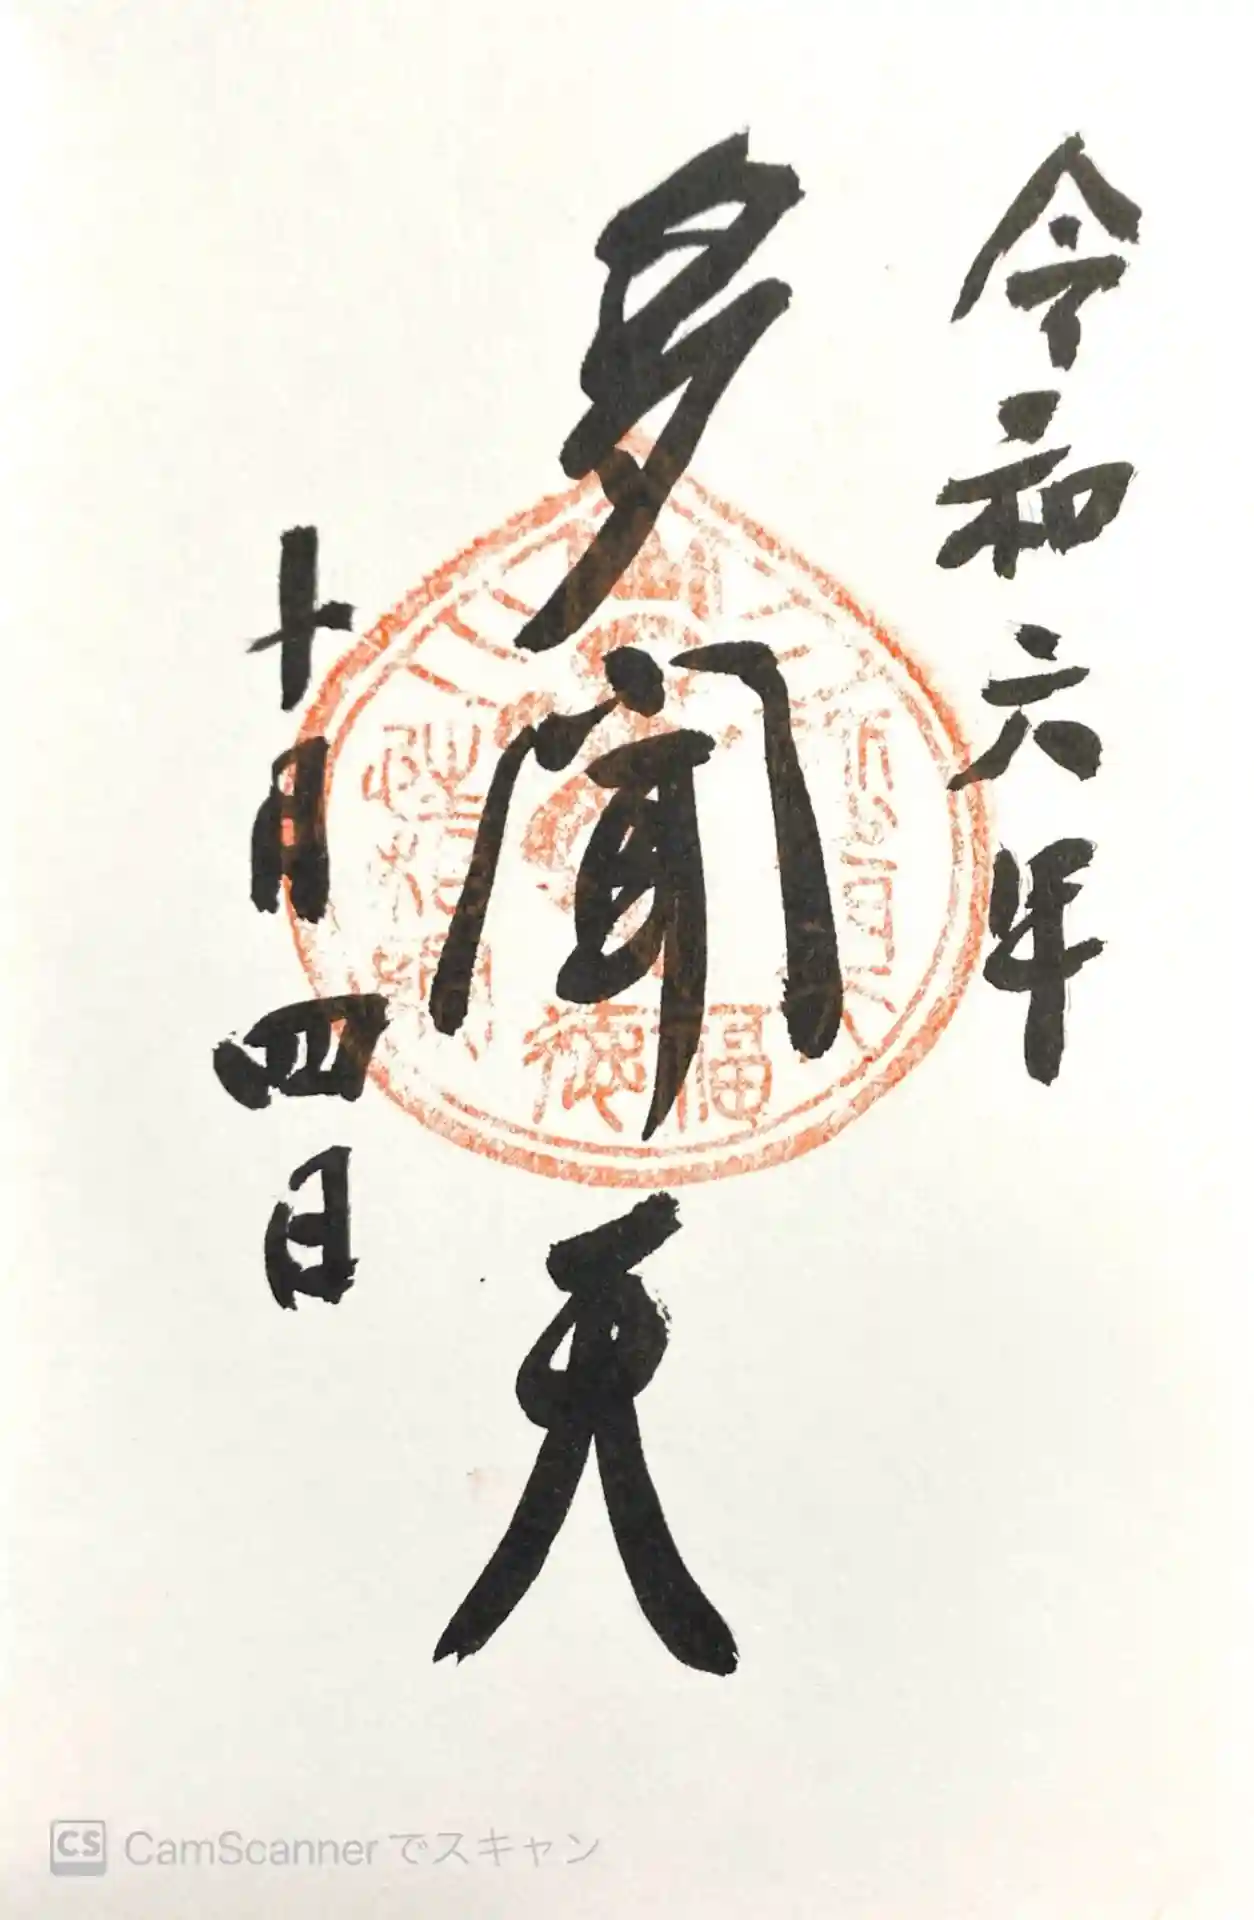 令和六年
多聞天
十月四日
福徳
CS CamScannerでスキャン